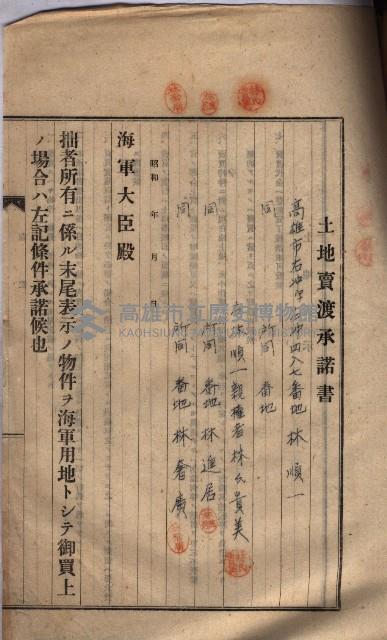 土地賣渡承諾書
高雄市右冲字右冲四八七番地 林 順一
同 所同 番地
林順一親權者林氏貴美
同 所同 番地 林 進居
同 所同 番地 林 奢廣
昭和 年 月 日
海軍大臣殿
拙者所有ニ係ル末尾表示ノ物件ヲ海軍用地トシテ御買上
ノ場合ハ左記條件承諾候也
高雄市立歷史博物館
KAOHSIUNG MUSEUM OF HISTORY